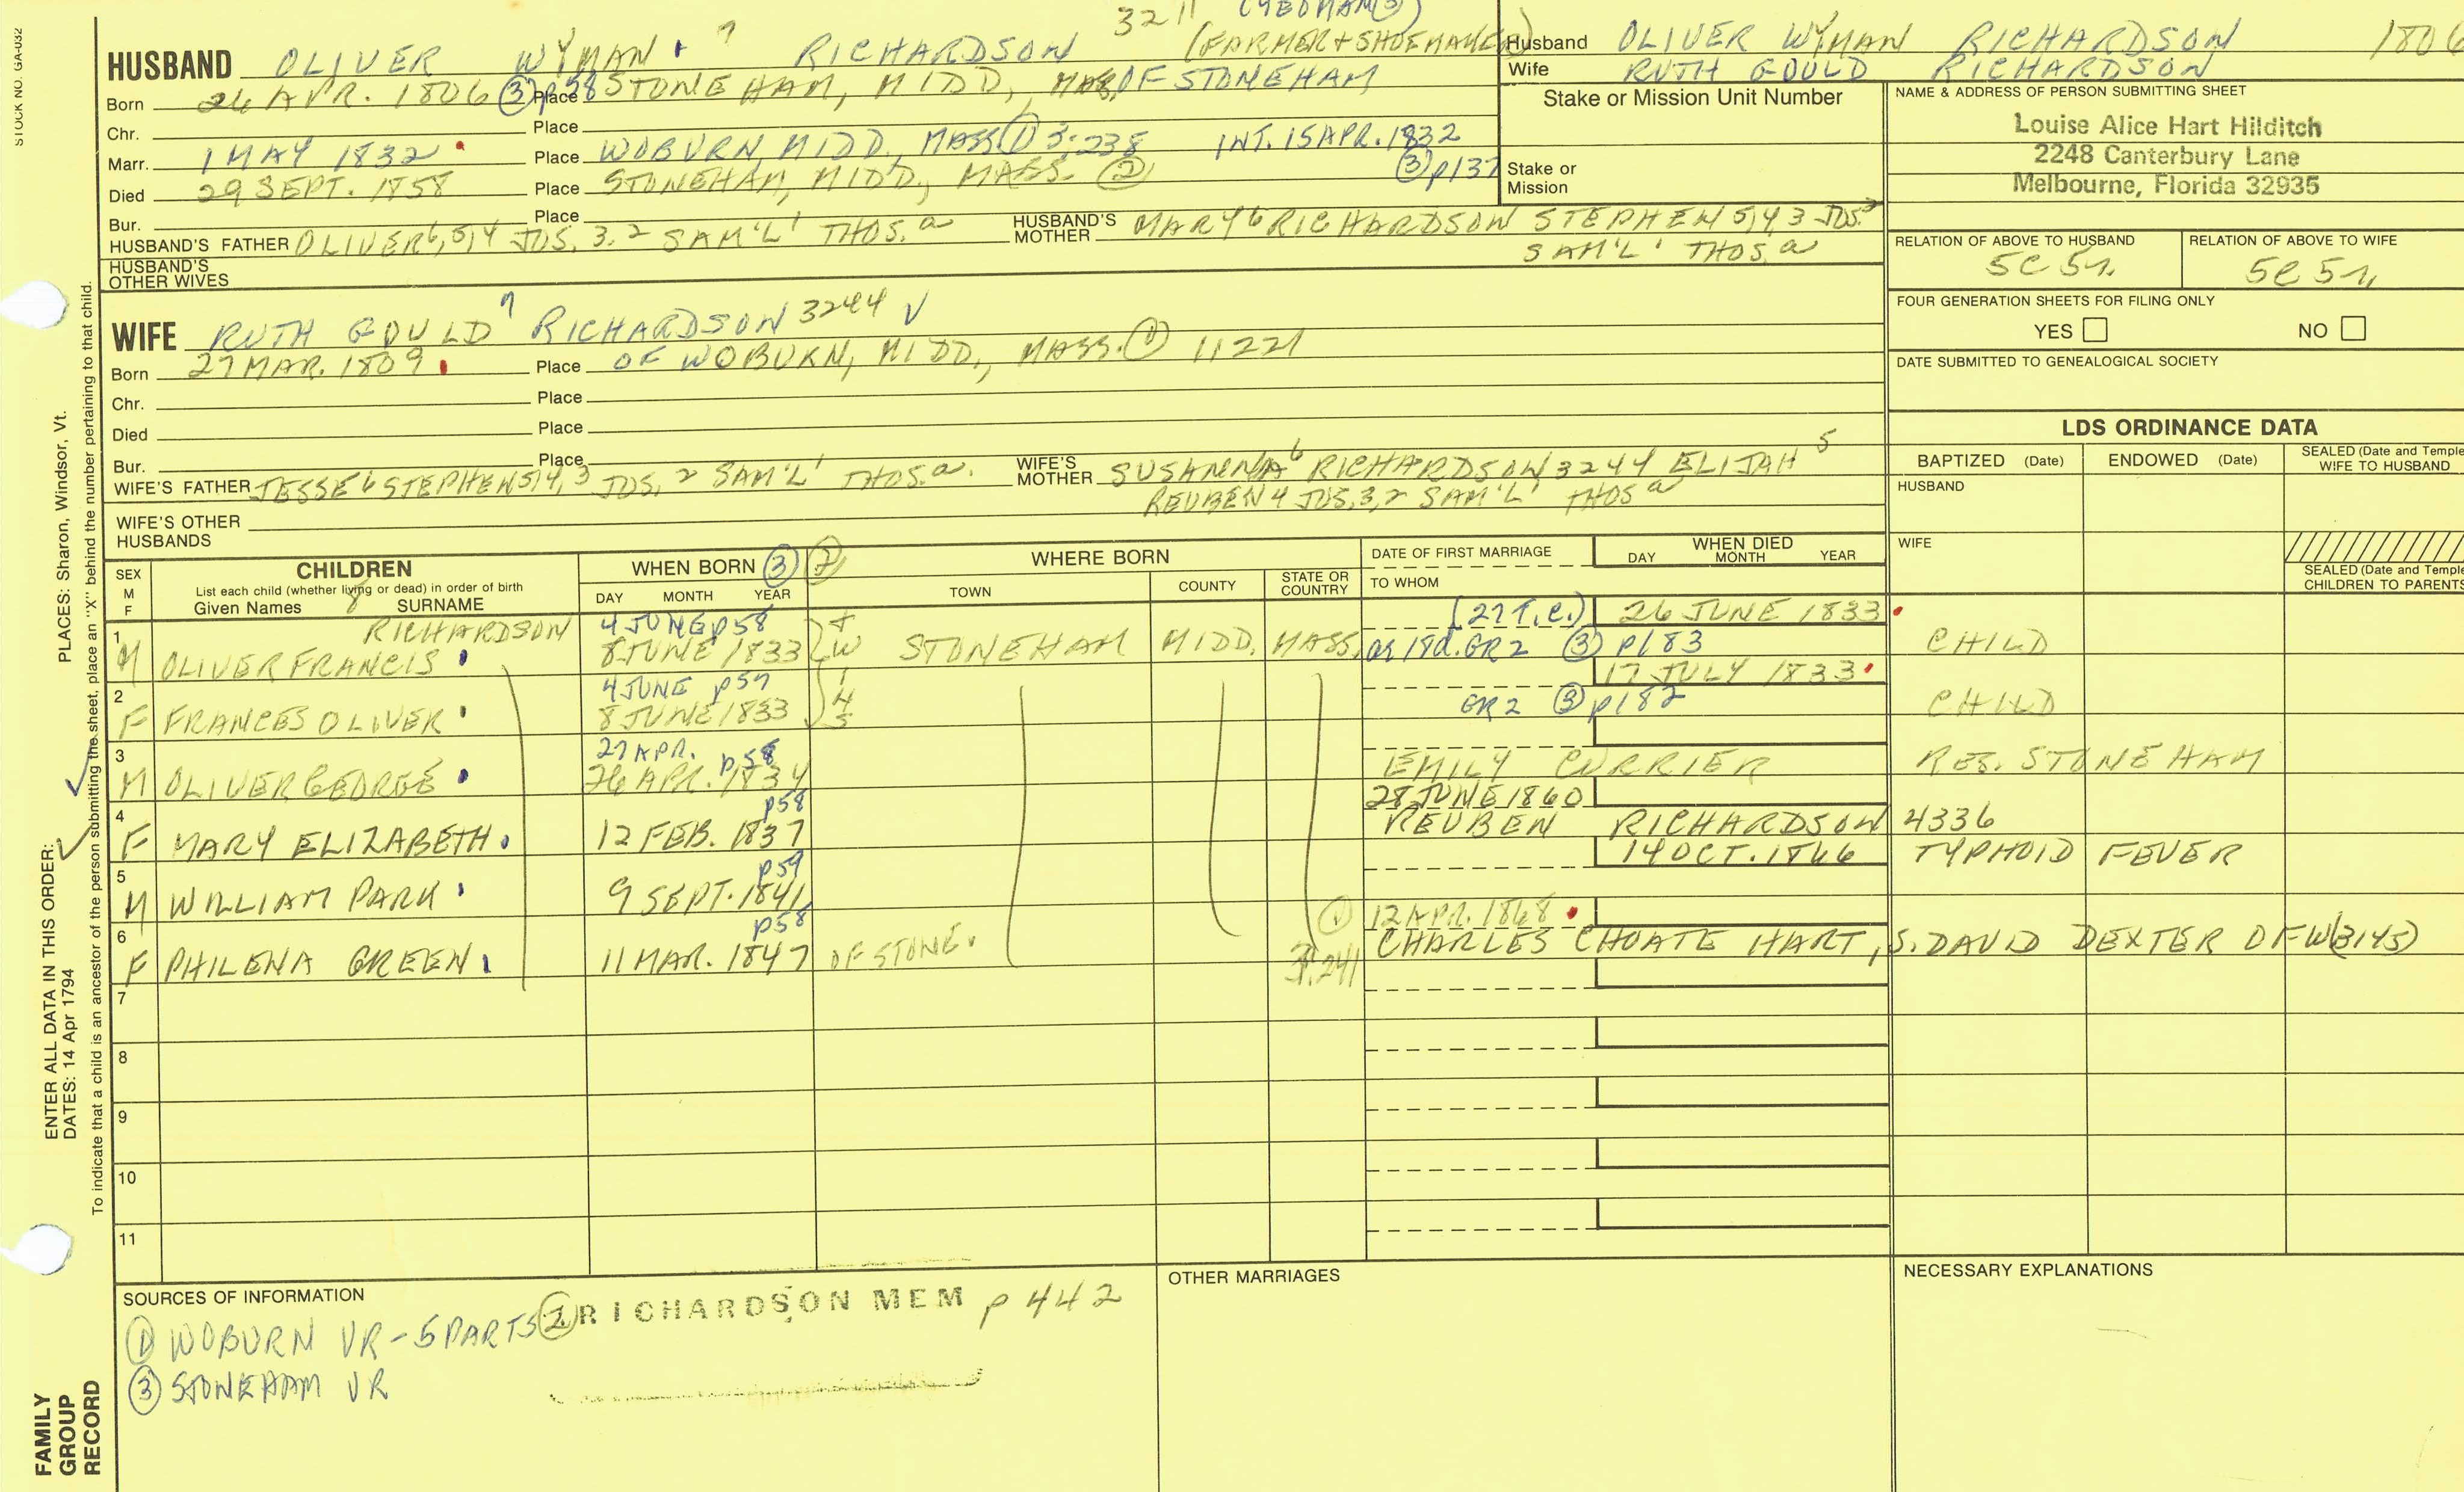 STOCK NO. GA-032
3211 (YEOMAN③)
HUSBAND OLIVER WYMAN 7 RICHARDSON (FARMER + SHOEMAKER)
Born 26 APR. 1806 ③ p58 Place STONEHAM, MIDD., MASS. OF STONEHAM
Chr. Place
Marr. 1 MAY 1832 Place WOBURN, MIDD., MASS. ① 3:238 INT. 15 APR. 1832
③ p137
Died 29 SEPT. 1858 Place STONEHAM, MIDD., MASS. ②
Bur. Place
HUSBAND'S FATHER OLIVER 6,5,4 JOS. 3,2 SAM'L' THOS. a
HUSBAND'S MOTHER MARY 6 RICHARDSON STEPHEN 5,4,3 JOS. 2
SAM'L' THOS. a
HUSBAND'S OTHER WIVES
Husband OLIVER WYMAN RICHARDSON 1806
Wife RUTH GOULD RICHARDSON
Stake or Mission Unit Number
Stake or Mission
NAME & ADDRESS OF PERSON SUBMITTING SHEET
Louise Alice Hart Hilditch
2248 Canterbury Lane
Melbourne, Florida 32935
RELATION OF ABOVE TO HUSBAND
5C 5r.
RELATION OF ABOVE TO WIFE
5C 5r.
FOUR GENERATION SHEETS FOR FILING ONLY
YES NO
DATE SUBMITTED TO GENEALOGICAL SOCIETY
WIFE RUTH GOULD 7 RICHARDSON 3244 V
Born 27 MAR. 1809 Place OF WOBURN, MIDD., MASS. ① 1:221
Chr. Place
Died Place
Bur. Place
WIFE'S FATHER JESSE 6 STEPHEN 5,4,3 JOS. 2 SAM'L' THOS. a.
WIFE'S MOTHER SUSANNA 6 RICHARDSON 3244 ELIJAH 5
REUBEN 4 JOS. 3,2 SAM'L' THOS a
WIFE'S OTHER HUSBANDS
LDS ORDINANCE DATA
BAPTIZED (Date) ENDOWED (Date) SEALED (Date and Temple WIFE TO HUSBAND
HUSBAND
WIFE
SEALED (Date and Temple CHILDREN TO PARENTS
SEX M F
CHILDREN
List each child (whether living or dead) in order of birth
Given Names 8 SURNAME
WHEN BORN ③ ②
DAY MONTH YEAR
WHERE BORN
TOWN COUNTY STATE OR COUNTRY
DATE OF FIRST MARRIAGE
TO WHOM
WHEN DIED
DAY MONTH YEAR
1 RICHARDSON 4 JUNE p58 (27 T.C.) 26 JUNE 1833
M OLIVER FRANCIS 8 JUNE 1833 STONEHAM MIDD. MASS. as 18d. GR2 ③ p183 CHILD
2 4 JUNE p57 17 JULY 1833
F FRANCES OLIVER 8 JUNE 1833 GR2 ③ p182 CHILD
3 27 APR. p58
M OLIVER GEORGE 26 APR. 1834 EMILY CURRIER RES. STONEHAM
4 p58 28 JUNE 1860
F MARY ELIZABETH 12 FEB. 1837 REUBEN RICHARDSON 4336
5 p59 14 OCT. 1866 TYPHOID FEVER
M WILLIAM PARK 9 SEPT. 1841
6 p58 ① 12 APR. 1868
F PHILENA GREEN 11 MAR. 1847 OF STONE. 3:241 CHARLES CHOATE HART, S. DAVID DEXTER OF W (3145)
7
8
9
10
11
SOURCES OF INFORMATION
① WOBURN VR - 5 PARTS ② RICHARDSON MEM p 442
③ STONEHAM VR
OTHER MARRIAGES
NECESSARY EXPLANATIONS
PLACES: Sharon, Windsor, Vt.
ENTER ALL DATA IN THIS ORDER:
DATES: 14 Apr 1794
To indicate that a child is an ancestor of the person submitting the sheet, place an "X" behind the number pertaining to that child.
FAMILY GROUP RECORD